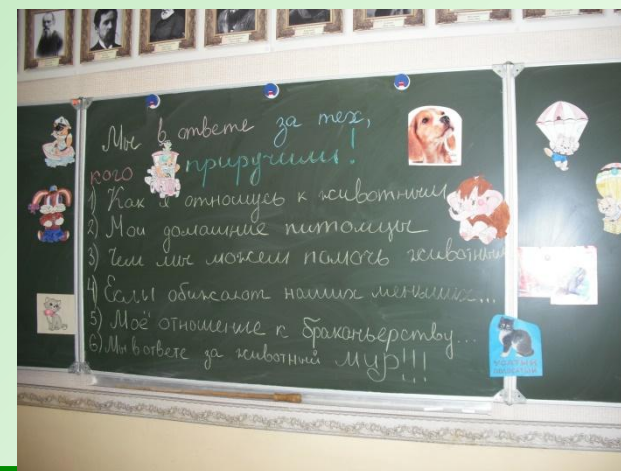 Мы в ответе за тех,
кого приручили!
1) Как я отношусь к животным
2) Мои домашние питомцы
3) Чем мы можем помочь животным
4) Если обижают наших меньших...
5) Моё отношение к браканьерству...
6) Мы в ответе за животный мир!!!